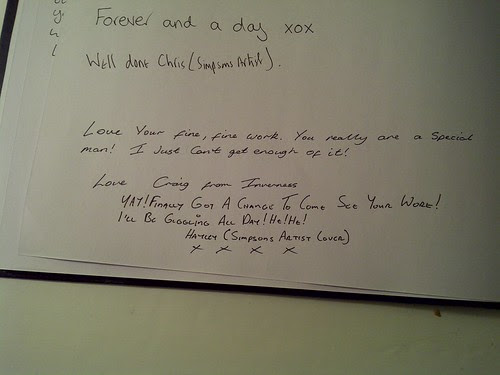 Forever and a day xox
Well done Chris (Simpsons Artist).
Love Your fine, fine work. You really are a special
man! I Just Can't get enough of it!
Love Craig from Inverness
YAY! Finally Got A Chance To Come See Your Work!
I'll Be Giggling All Day! He! He!
Hayley (Simpsons Artist Lover)
x x x x